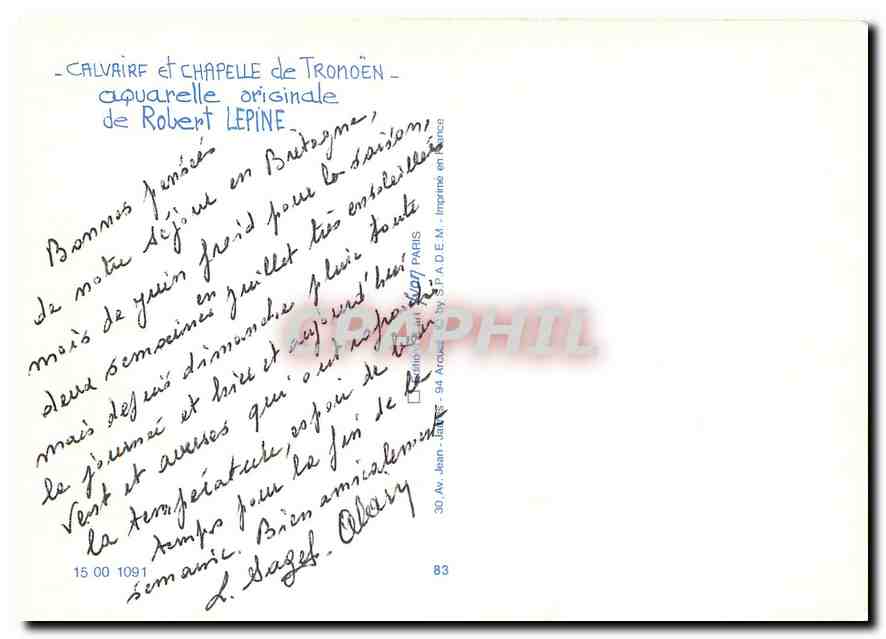 - CALVAIRE et CHAPELLE de TRONOËN -
aquarelle originale
de Robert LEPINE
Bonnes pensées
de notre séjour en Bretagne,
mois de juin froid pour la saison,
deux semaines en juillet très ensoleillées
mais depuis dimanche pluie toute
la journée et hier et aujourd'hui
vent et averses qui ont rafraichi
la température, espoir de beau
temps pour la fin de la
semaine. Bien amicalement
L. Sages.
15 00 1091
83
PARIS
30, Av. Jean-Jaurès - 94 Arcueil - © by S.P.A.D.E.M. - Imprimé en France
CPAPHIL